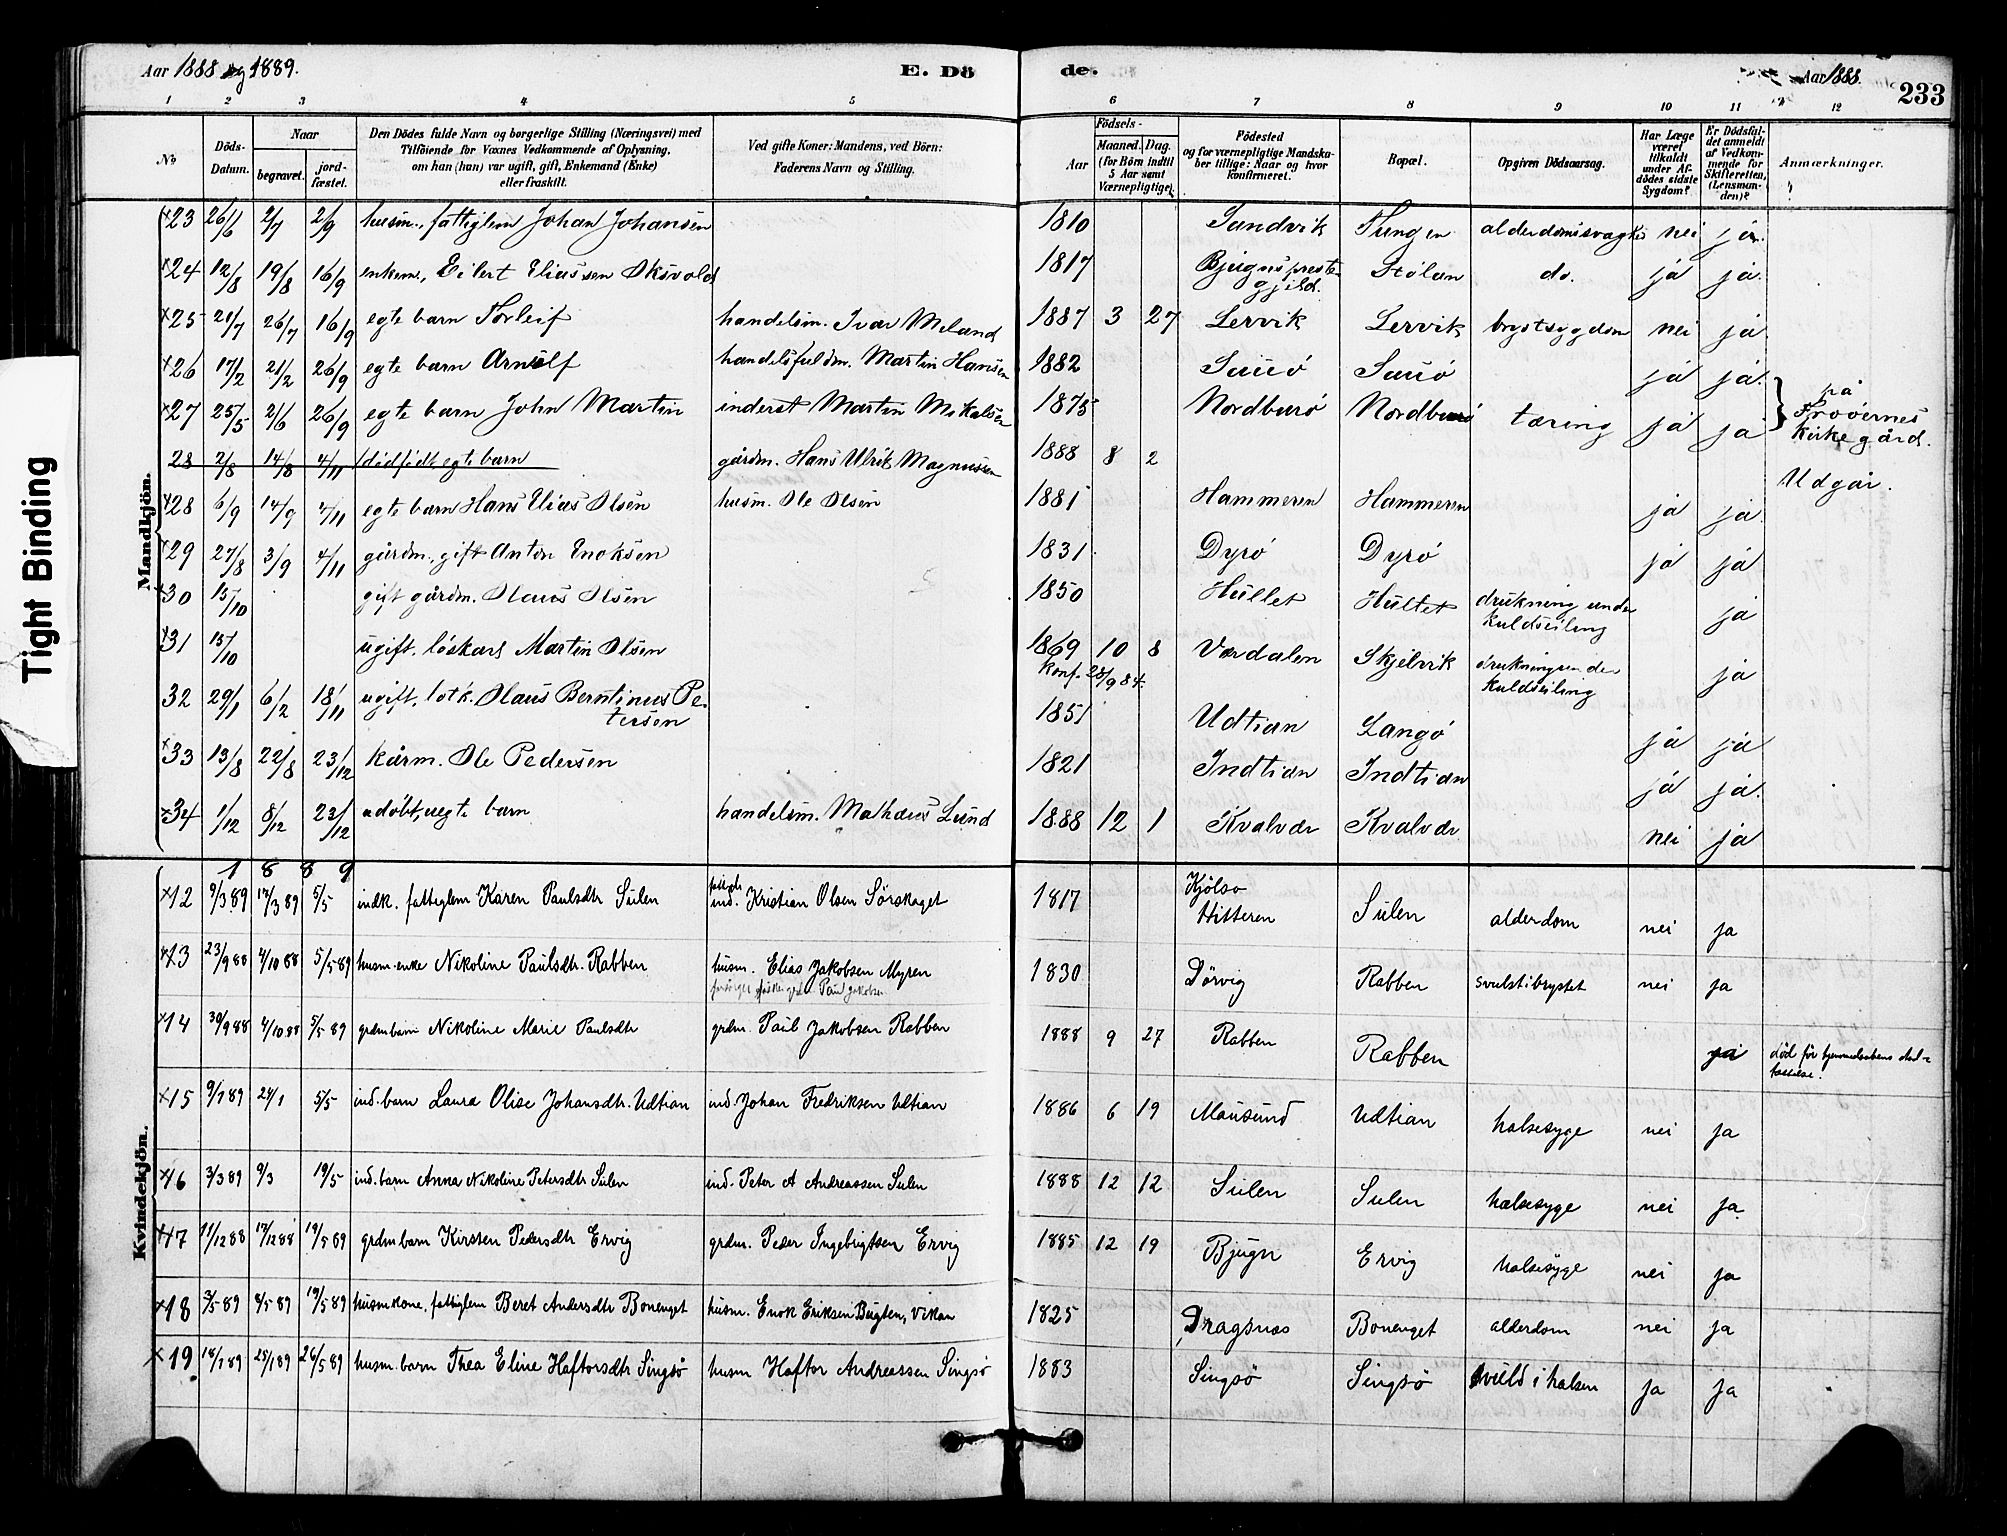 Aar 1888 og 1889.
E. Dö
de.
Aar 1888.
233
1 2 3 4 5 6 7 8 9 10 11 12
No
Döds-Datum.
Naar
begravet.
jordfæstet.
Den Dödes fulde Navn og borgerlige Stilling (Næringsvei) med
Tilföiende for Voxnes Vedkommende af Oplysning,
om han (hun) var ugift, gift, Enkemand (Enke)
eller fraskilt.
Ved gifte Koner: Mandens, ved Börn:
Faderens Navn og Stilling.
Födsels-
Aar
Maaned. Dag.
(for Börn indtil
5 Aar samt
Værnepligtige).
Födested
og for værnepligtige Mandska-
ber tillige: Naar og hvor
konfirmeret.
Bopæl.
Opgiven Dödsaarsag.
Har Læge
været
tilkaldt
under Af-
dödes sidste
Sygdom?
Er Dödsfal-
det anmeldt
af Vedkom-
mende for
Skifteretten,
(Lensman-
den)?
Anmærkninger.
Tight Binding
Mandkjön.
23 26/6 2/7 2/9 husm., fattiglem Johan Johansen 1810 Sundvik Tungen nei ja.
24 12/8 19/8 16/9 enkem., Eilert Eliassen Oksvold 1817 Bjugns preste-
gjeld. Stölan do. ja ja.
25 21/7 26/7 16/9 egte barn Torleif handelsm. Ivar Meland 1887 3 27 Lervik Lervik brystsygdom nei ja
26 17/2 21/2 26/9 egte barn Arnulf handelsfuldm. Martin Hansen 1882 Sauö Sauö ja ja.
27 25/5 2/6 26/9 egte barn John Martin inderst Martin Mikalsen 1875 Nordburö Nordburö tæring ja ja
på
Froöernes
kirkegård.
28 2/8 14/8 4/11 dödfödt egte barn gårdm. Hans Ulrik Magnussen 1888 8 2 Udgår.
28 6/9 14/9 4/11 egte barn Hans Elias Olsen husm. Ole Olsen 1881 Hammeren Hammeren ja ja.
29 27/8 3/9 4/11 gårdm., gift Anton Enoksen 1831 Dyrö Dyrö ja ja
30 15/10 gift gårdm. Olaus Olsen 1850 Hullet Hullet drukning under
kuldseiling ja
31 15/10 ugift. löskarl Martin Olsen 1869 10 8 Værdalen Skjelvik drukning under
kuldseiling ja
Konf. 28/9 84.
32 29/1 6/2 18/11 ugift. Olaus Berntinus Pe-
tersen 1851 Udtian Langö ja ja
33 13/8 22/8 23/12 kårm. Ole Pedersen 1821 Indtian Indtian ja ja.
34 1/12 8/12 23/12 udöbt, uegte barn handelsm. Mathæus Lund 1888 12 1 Kvalvær Kvalvær nei ja
1 8 8 9
Kvindekjön.
12 9/3 89 17/3 89 5/5 indk. fattiglem Karen Paulsdtr Sulen ind. Kristian Olsen Sörskaget 1817 Kjölsö
Hitteren Sulen alderdom nei ja
13 23/9 88 4/10 88 5/5 89 husm. enke Nikoline Paulsdtr. Rabben husm. Elias Jakobsen Myren 1830 Dörvig Rabben svulst i brystet nei ja
14 30/9 88 4/10 88 5/5 89 grdm barn Nikoline Marie Paulsdtr grdm. Paul Jakobsen Rabben 1888 9 27 Rabben Rabben ja död för hjemmedaabens stad-
fæstelse.
15 9/1 89 24/1 5/5 ind. barn Laura Olise Johansdtr. Udtian ind. Johan Fredriksen Udtian 1886 6 19 Mausund Udtian halsesyge nei ja
16 3/3 89 9/3 19/5 ind. barn Anna Nikoline Petersdtr Sulen ind. Peter A Andreassen Sulen 1888 12 12 Sulen Sulen halsesyge nei ja.
17 11/12 88 17/12 88 19/5 89 grdm barn Kirsten Pedersdtr Ervig grdm. Peder Ingebrigtsen Ervig 1885 12 19 Bjugn Ervig halsesyge nei ja
18 3/5 89 8/5 89 19/5 89 husm kone, fattiglem Beret Andersdtr Bonenget husm. Enok Eriksen Bugten, Vikan 1825 Dragsnæs Bonenget alderdom nei ja
19 18/1 89 25/1 89 26/5 89 husm. barn Thea Eline Haftorsdtr Singsö husm Haftor Andreassen Singsö 1883 Singsö Singsö i halsen ja ja